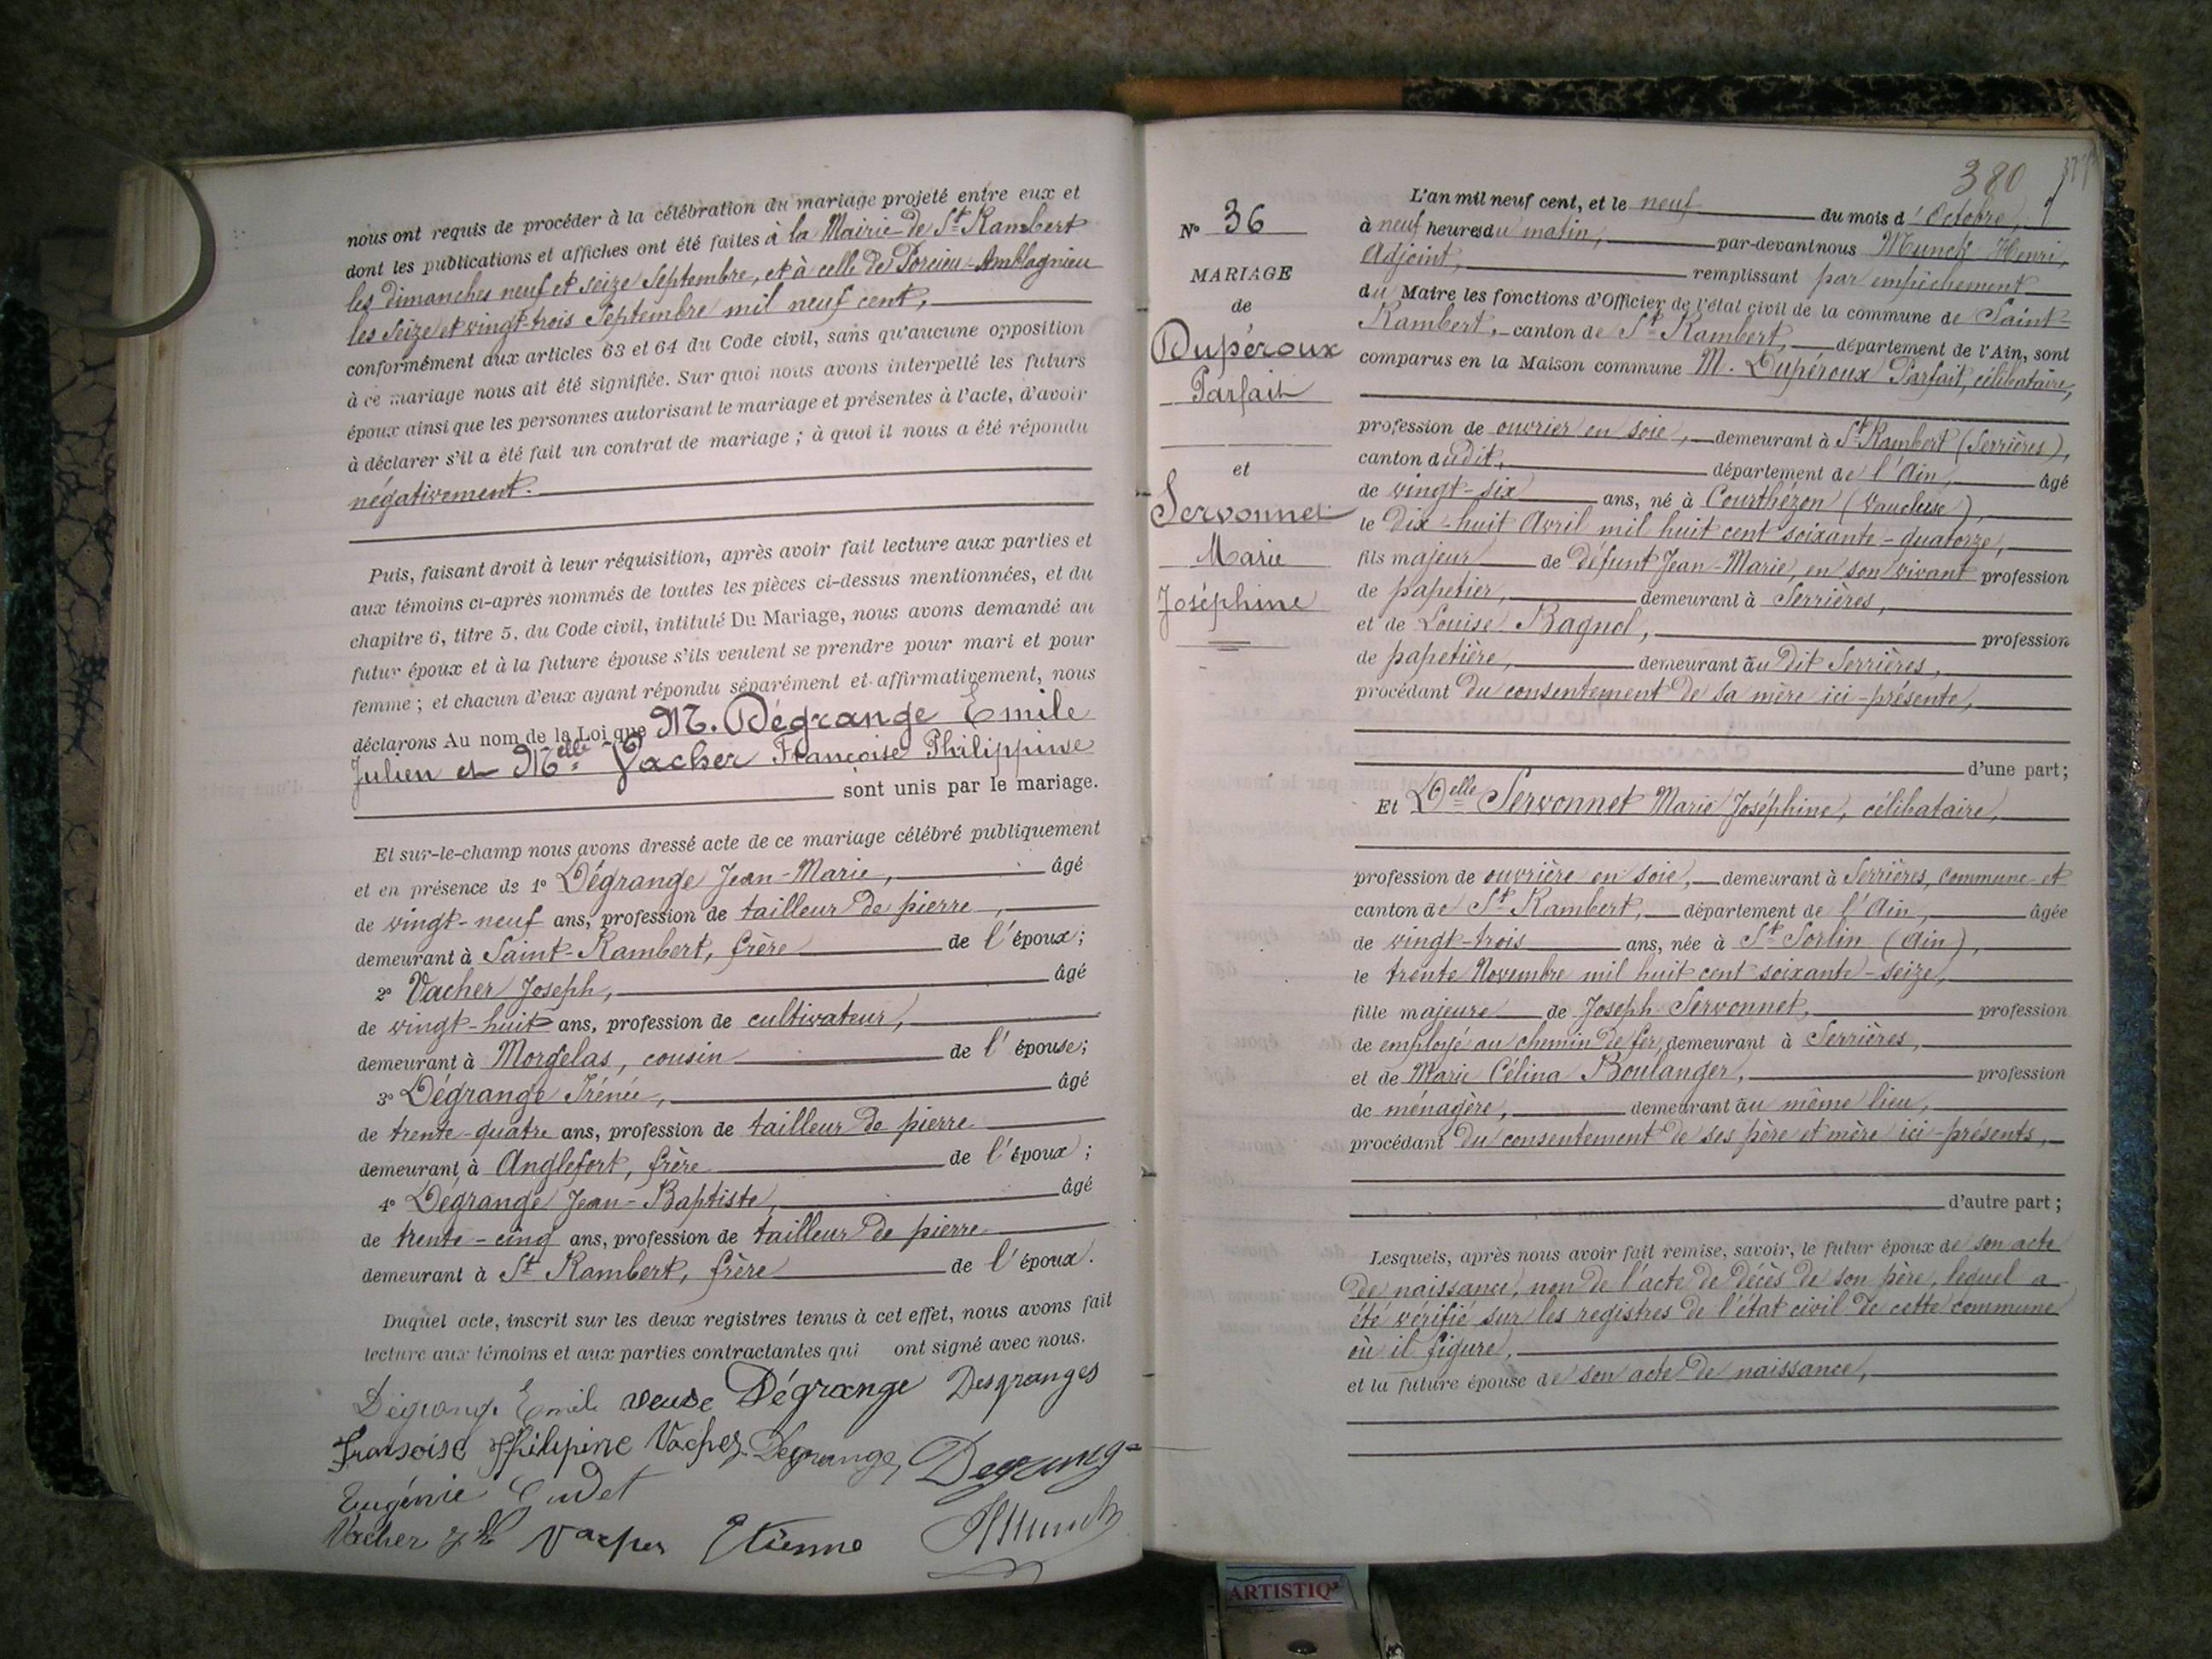 nous ont requis de procéder à la célébration du mariage projeté entre eux et
dont les publications et affiches ont été faites à la Mairie de St Rambert
les dimanches neuf et seize Septembre, et à celle de Porcieu-Amblagnieu
les seize et vingt-trois Septembre mil neuf cent,
conformément aux articles 63 et 64 du Code civil, sans qu'aucune opposition
à ce mariage nous ait été signifiée. Sur quoi nous avons interpellé les futurs
époux ainsi que les personnes autorisant le mariage et présentes à l'acte, d'avoir
à déclarer s'il a été fait un contrat de mariage ; à quoi il nous a été répondu
négativement.
Puis, faisant droit à leur réquisition, après avoir fait lecture aux parties et
aux témoins ci-après nommés de toutes les pièces ci-dessus mentionnées, et du
chapitre 6, titre 5, du Code civil, intitulé Du Mariage, nous avons demandé au
futur époux et à la future épouse s'ils veulent se prendre pour mari et pour
femme ; et chacun d'eux ayant répondu séparément et affirmativement, nous
déclarons Au nom de la Loi que M. Dégrange Emile
Julien et Melle Vacher Françoise Philippine
sont unis par le mariage.
Et sur-le-champ nous avons dressé acte de ce mariage célébré publiquement
et en présence de 1º Dégrange Jean-Marie, âgé
de vingt-neuf ans, profession de tailleur de pierre,
demeurant à Saint-Rambert, frère de l'époux ;
2º Vacher Joseph, âgé
de vingt-huit ans, profession de cultivateur,
demeurant à Morgelas, cousin de l'épouse ;
3º Dégrange Irénée, âgé
de trente-quatre ans, profession de tailleur de pierre
demeurant à Anglefort, frère de l'époux ;
4º Dégrange Jean-Baptiste, âgé
de trente-cinq ans, profession de tailleur de pierre
demeurant à St Rambert, frère de l'époux.
Duquel acte, inscrit sur les deux registres tenus à cet effet, nous avons fait
lecture aux témoins et aux parties contractantes qui ont signé avec nous.
Dégrange Emile veuve Dégrange Desgranges
Fransoise Philipine Vacher Degrange Degrange
Eugénie
Vacher Jh Vacher Etienne HMunch
380
Nº 36
MARIAGE
de
Dupéroux
Parfait
et
Servonnet
Marie
Joséphine
L'an mil neuf cent, et le neuf du mois d'Octobre,
à neuf heures du matin, par-devant nous Munch Henri,
Adjoint, remplissant par empêchement
du Maire les fonctions d'Officier de l'état civil de la commune de Saint-
Rambert, canton de St Rambert, département de l'Ain, sont
comparus en la Maison commune M. Dupéroux Parfait, célibataire,
profession de ouvrier en soie, demeurant à St Rambert (Serrières),
canton dudit, département de l'Ain, âgé
de vingt-six ans, né à Courthézon (Vaucluse),
le dix-huit Avril mil huit cent soixante-quatorze,
fils majeur de défunt Jean-Marie, en son vivant profession
de papetier, demeurant à Serrières,
et de Louise Bagnol, profession
de papetière, demeurant au dit Serrières,
procédant du consentement de sa mère ici-présente,
d'une part ;
Et Delle Servonnet Marie Joséphine, célibataire,
profession de ouvrière en soie, demeurant à Serrières, commune et
canton de St Rambert, département de l'Ain, âgée
de vingt-trois ans, née à St Sorlin (Ain),
le trente Novembre mil huit cent soixante-seize,
fille majeure de Joseph Servonnet, profession
de employé au chemin de fer, demeurant à Serrières,
et de Marie Célina Boulanger, profession
de ménagère, demeurant au même lieu,
procédant du consentement de ses père et mère ici-présents,
d'autre part ;
Lesquels, après nous avoir fait remise, savoir, le futur époux de son acte
de naissance, non de l'acte de décès de son père, lequel a
été vérifié sur les registres de l'état civil de cette commune
où il figure,
et la future épouse de son acte de naissance,
ARTISTIQ